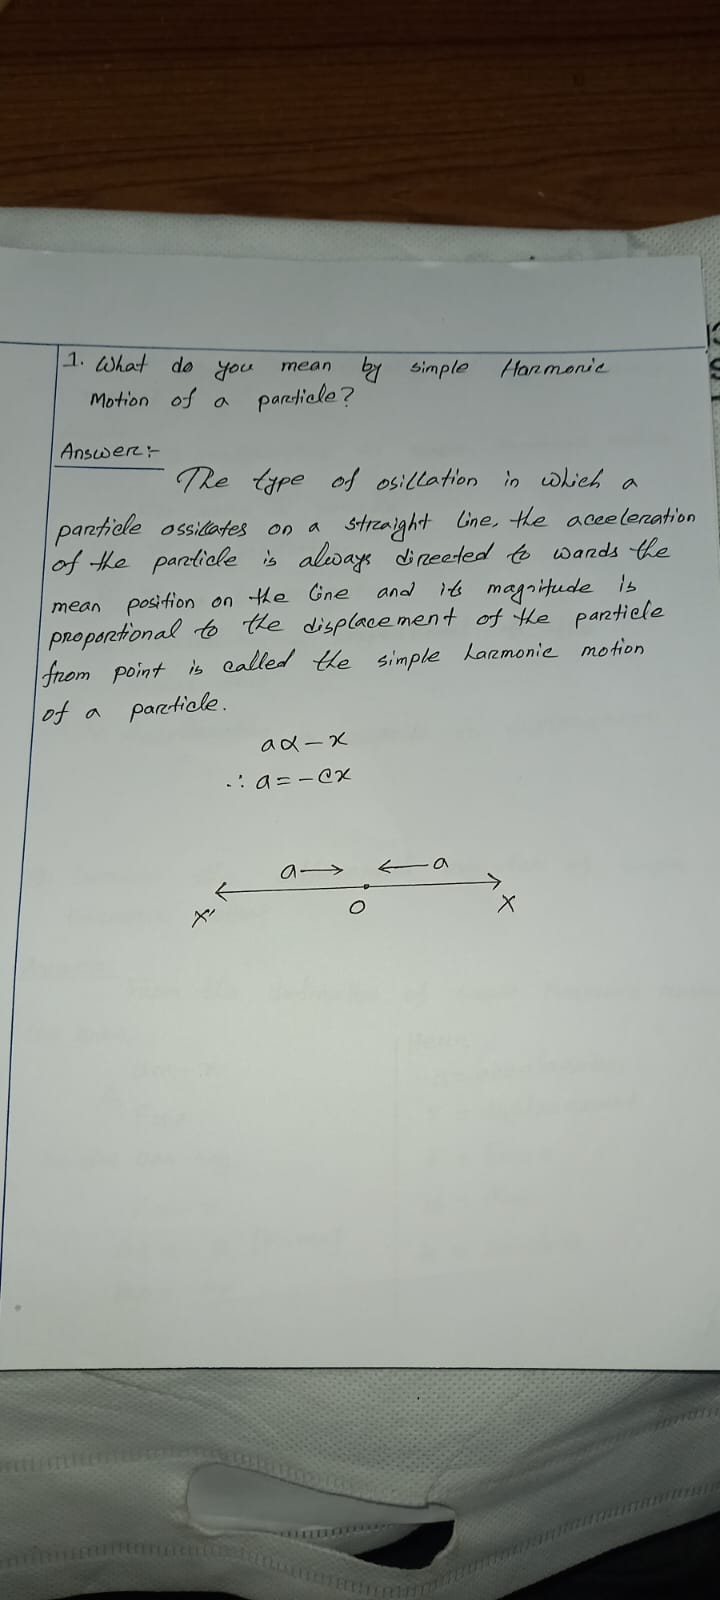 1. What do you mean by simple Harmonic
Motion of a particle?
Answer:-
The type of osillation in which a
particle ossillates on a straight line, the acceleration
of the particle is always directed to wards the
mean position on the line and its magnitude is
proportional to the displacement of the particle
from point is called the simple harmonic motion
of a particle.
a∝-x
∴ a=-cx
a→ ←a
X' O X